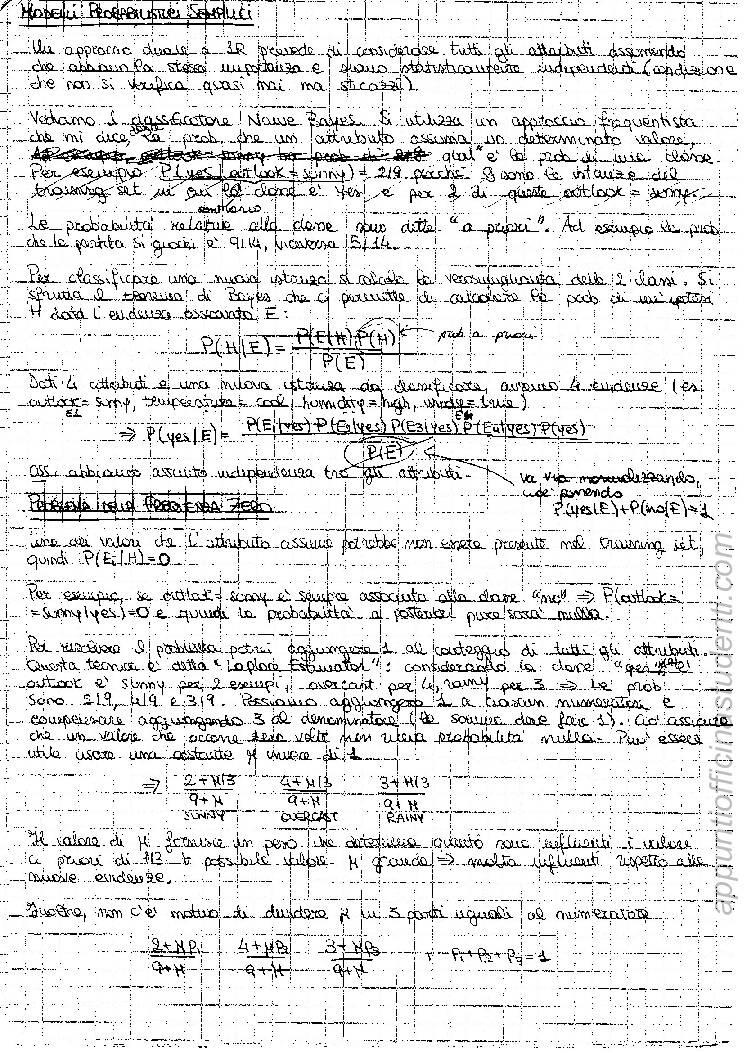 MODELLI PROBABILISTICI SEMPLICI
Un approccio duale a 1R prevede di considerare tutti gli attributi assumendo
che abbiano la stessa importanza e siano statisticamente indipendenti (condizione
che non si verifica quasi mai ma sticazzi)
Vediamo il classificatore Naive Bayes. Si utilizza un approccio frequentista
che mi dice, la prob. che un attributo assuma un determinato valore,
qual è la prob di una classe
Per esempio P(yes|outlook = sunny) = 2/9 perché 9 sono le istanze del
training set in cui la classe è yes e per 2 di queste outlook = sunny.
Le probabilità relative alla classe sono dette "a priori". Ad esempio la prob
che la partita si giochi è 9/14, viceversa 5/14.
Per classificare una nuova istanza si calcola la verosimiglianza delle 2 classi. Si
sfrutta il teorema di Bayes che ci permette di calcolare la prob di una ipotesi
H data l'evidenza E:
P(H|E) = P(E|H) P(H) / P(E) prob a priori
Dati 4 attributi e una nuova istanza da classificare, avremo 4 evidenze (es
outlook = sunny, temperature = cool, humidity = high, windy = true)
E1 E4
⇒ P(yes|E) = P(E1|yes) P(E2|yes) P(E3|yes) P(E4|yes) P(yes) / P(E)
abbiamo assunto indipendenza tra gli attributi.
va via normalizzando,
cioè ponendo
P(yes|E) + P(no|E) = 1
PROBLEMA DELLA FREQUENZA ZERO
uno dei valori che l'attributo assume potrebbe non essere presente nel training set,
quindi P(Ei|H) = 0
Per esempio, se outlook = sunny è sempre associata alla classe "no" ⇒ P(outlook =
= sunny|yes) = 0 e quindi la probabilità a posteriori pure sarà nulla.
Per risolvere il problema potrei aggiungere 1 al conteggio di tutti gli attributi.
Questa tecnica è detta "Laplace Estimator": considerando la classe
outlook è sunny per 2 esempi, overcast per 4, rainy per 3 ⇒ le prob
sono 2/9, 4/9 e 3/9. Possiamo aggiungere 1 a ciascun numeratore e
compensare aggiungendo 3 al denominatore (la somma deve fare 1). Ciò assicura
che un valore che occorre zero volte non riceva probabilità nulla. Può essere
utile usare una costante μ invece di 1
⇒ 2+μ/3 / 9+μ 4+μ/3 / 9+μ 3+μ/3 / 9+μ
SUNNY OVERCAST RAINY
Il valore di μ fornisce un peso che determina quanto sono influenti i valori
a priori di 1/3 possibile valore. μ grande ⇒ molto influenti rispetto alle
nuove evidenze.
Inoltre, non c'è motivo di dividere μ in 3 parti uguali al numeratore
2+μP1 / 9+μ 4+μP2 / 9+μ 3+μP3 / 9+μ P1+P2+P3 = 1
appuntiofficinastudenti.com